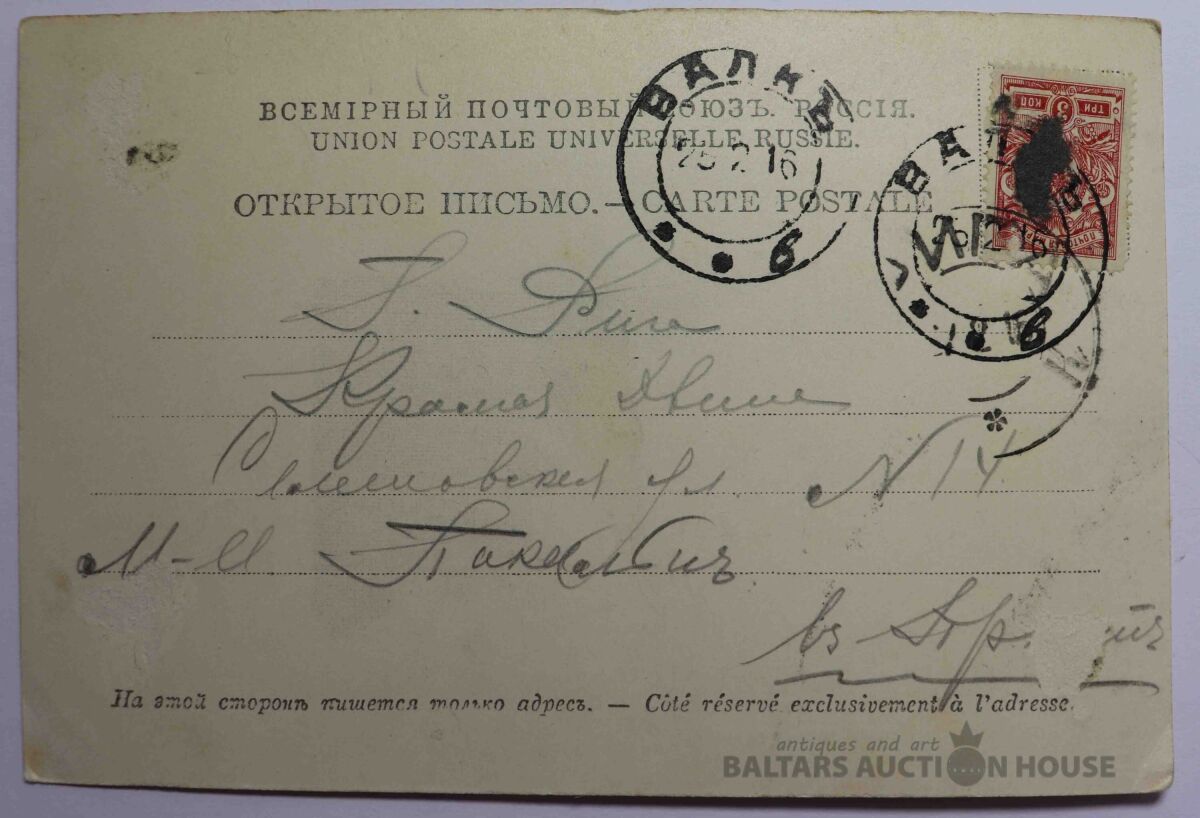 ВСЕМІРНЫЙ ПОЧТОВЫЙ СОЮЗЪ. РОССІЯ.
UNION POSTALE UNIVERSELLE. RUSSIE.
ОТКРЫТОЕ ПИСЬМО. — CARTE POSTALE
ВАЛКЪ
25 2 16
б
ВАЛКЪ
2 16
б
ТРИ 3 КОП
Г. Рига
Красная Двина
ул. N 14
М-Ль
въ
На этой сторонѣ пишется только адресъ. — Côté réservé exclusivement à l'adresse.
antiques and art
BALTARS AUCTION HOUSE